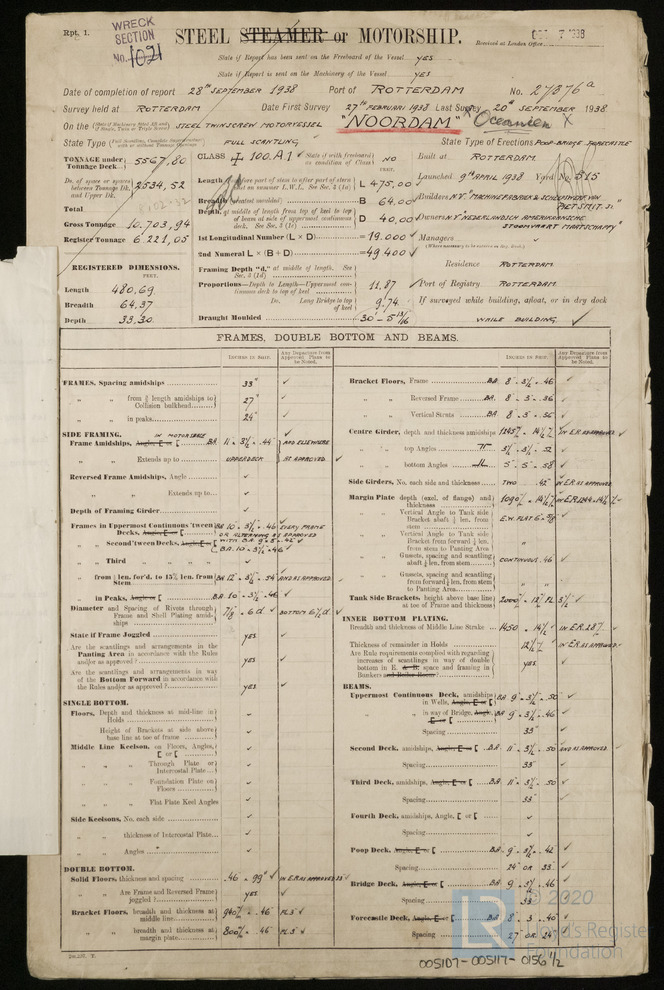 Rpt. 1.
WRECK
SECTION
No. 1021
STEEL STEAMER or MOTORSHIP.
Received at London Office
DEC 7 1938
State if Report has been sent on the Freeboard of the Vessel YES
State if Report is sent on the Machinery of the Vessel YES
Date of completion of report 28th SEPTEMBER 1938 Port of ROTTERDAM No. 27376a
Survey held at ROTTERDAM Date First Survey 27th FEBRUARI 1938 Last Survey 20th SEPTEMBER 1938
On the STEEL TWINSCREW MOTORVESSEL "NOORDAM" X Oceanien X
State Type FULL SCANTLING State Type of Erections POOP-BRIDGE-FORECASTLE
TONNAGE under Tonnage Deck 5567,80
Do. of space or spaces between Tonnage Dk. and Upper Dk. 2534,52
Total
Gross Tonnage 10.703,94
Register Tonnage 6 221,05
REGISTERED DIMENSIONS.
FEET.
Length 480,69
Breadth 64,37
Depth 33,30
CLASS 100.A1 State if with freeboard as condition of Class NO
FEET.
Length L 475,00
Breadth B 64.00
Depth, at middle of length from top of keel to top of beam at side of uppermost continuous deck. See Sec. 3 (1c) D 40,00
1st Longitudinal Number (L × D) = 19.000
2nd Numeral L × (B + D) = 49400
Framing Depth "d," at middle of length. See Sec. 3 (1d)
Proportions—Depth to Length—Uppermost continuous deck to top of keel 11,87
Do. Long Bridge to top of keel 9.74
Draught Moulded 30' - 5 13/16
Built at ROTTERDAM.
Launched 9th APRIL 1938 Yard No. 515
Builders N.V. "MACHINEFABRIEK & SCHEEPSWERF VAN P. SMIT Jr."
Owners N.V "NEDERLANDSCH AMERIKAANSCHE STOOMVAART MAATSCHAPPY"
Managers
Residence ROTTERDAM
Port of Registry ROTTERDAM
If surveyed while building, afloat, or in dry dock
WHILE BUILDING
FRAMES, DOUBLE BOTTOM AND BEAMS.
INCHES IN SHIP.
Any Departure from Approved Plans to be Noted.
FRAMES, Spacing amidships 33"
" " from ⅗ length amidships to Collision bulkhead 27"
" " in peaks 24"
SIDE FRAMING.
IN MOTORSHIP
Frame Amidships, Angle, E or [ BA 11 - 3½ - .44" AND ELSEWHERE
" " Extends up to UPPERDECK AS APPROVED
Reversed Frame Amidships, Angle
" " Extends up to
Depth of Framing Girder
Frames in Uppermost Continuous 'tween Decks, Angle, E or [ BA 10 - 3½ - .46 EVERY FRAME
OR ALTERNING AS APPROVED
" " Second 'tween Decks, Angle, E or [ WITH BA 9 - 3 - .42"
BA. 10 - 3½ - .46
" " Third
" " from ⅕ len. for'd. to 15% len. from Stem BA 12 - 3½ - .54 AND AS APPROVED
" " in Peaks, Angle or [ BA 10 - 3½ - .46
Diameter and Spacing of Rivets through Frame and Shell Plating amidships 7/8 - 6 d BOTTOM 6½ d.
State if Frame Joggled YES
Are the scantlings and arrangements in the Panting Area in accordance with the Rules and/or as approved? YES
Are the scantlings and arrangements in way of the Bottom Forward in accordance with the Rules and/or as approved? YES
SINGLE BOTTOM.
Floors, Depth and thickness at mid-line in Holds
Height of Brackets at side above base line at toe of frame
Middle Line Keelson, on Floors, Angles, [ or [
" " Through Plate or Intercostal Plate
" " Foundation Plate on Floors
" " Flat Plate Keel Angles
Side Keelsons, No. each side
" " thickness of Intercostal Plate
" " Angles
DOUBLE BOTTOM.
Solid Floors, thickness and spacing .46 - 99" IN ER AS APPROVED
" " Are Frame and Reversed Frame joggled? YES
Bracket Floors, breadth and thickness at middle line 940% - .46"
" " breadth and thickness at margin plate 800% - .46"
INCHES IN SHIP.
Any Departure from Approved Plans to be Noted.
Bracket Floors, Frame BA 8 - 3½ - .46
" " Reversed Frame BA. 8 - 3 - .36
" " Vertical Struts BA 8 - 3 - .36
Centre Girder, depth and thickness amidships IN E.R. AS APPROVED
" " top Angles 3½ - 3½ - .52
" " bottom Angles 5 - 5 - .58
Side Girders, No. each side and thickness TWO .42" IN ER AS APPROVED
Margin Plate depth (excl. of flange) and thickness 1090%
" " Vertical Angle to Tank side Bracket abaft ¼ len. from stem E.W. FLAT 6 - 5/8
" " Vertical Angle to Tank side Bracket from forward ¼ len. from stem to Panting Area "
" " Gussets, spacing and scantling abaft ¼ len. from stem CONTINUOUS .46
" " Gussets, spacing and scantling from forward ¼ len. from stem to Panting Area " "
Tank Side Brackets, height above base line at toe of Frame and thickness
INNER BOTTOM PLATING.
Breadth and thickness of Middle Line Strake 1450
Thickness of remainder in Holds IN E.R. AS APPROVED
Are Rule requirements complied with regarding increases of scantlings in way of double bottom in E. & B. space and framing in Bunkers and Boiler Room? YES
BEAMS.
Uppermost Continuous Deck, amidships in Wells, Angle, E or [ BA 9 - 3½ - .50
" " in way of Bridge, Angle, E or [ BA 9 - 3½ - .46
Spacing 33"
Second Deck, amidships, Angle, E or [ BA 11 - 3½ - .50 AND AS APPROVED
Spacing 33"
Third Deck, amidships, Angle, E or [ BA 11 - 3½ - .50
Spacing 33"
Fourth Deck, amidships, Angle, [ or [
Spacing
Poop Deck, Angle, E or [ BA - 9 - 3½ - .42
Spacing 24 OR 33
Bridge Deck, Angle, E or [ BA 9 - 3½ - .46
Spacing 33
Forecastle Deck, Angle, E or [ BA 8 - 3 - .40
Spacing 27 OR 24
© 2020
Lloyd's Register
Foundation
LR
005107-005117-0156 1/2